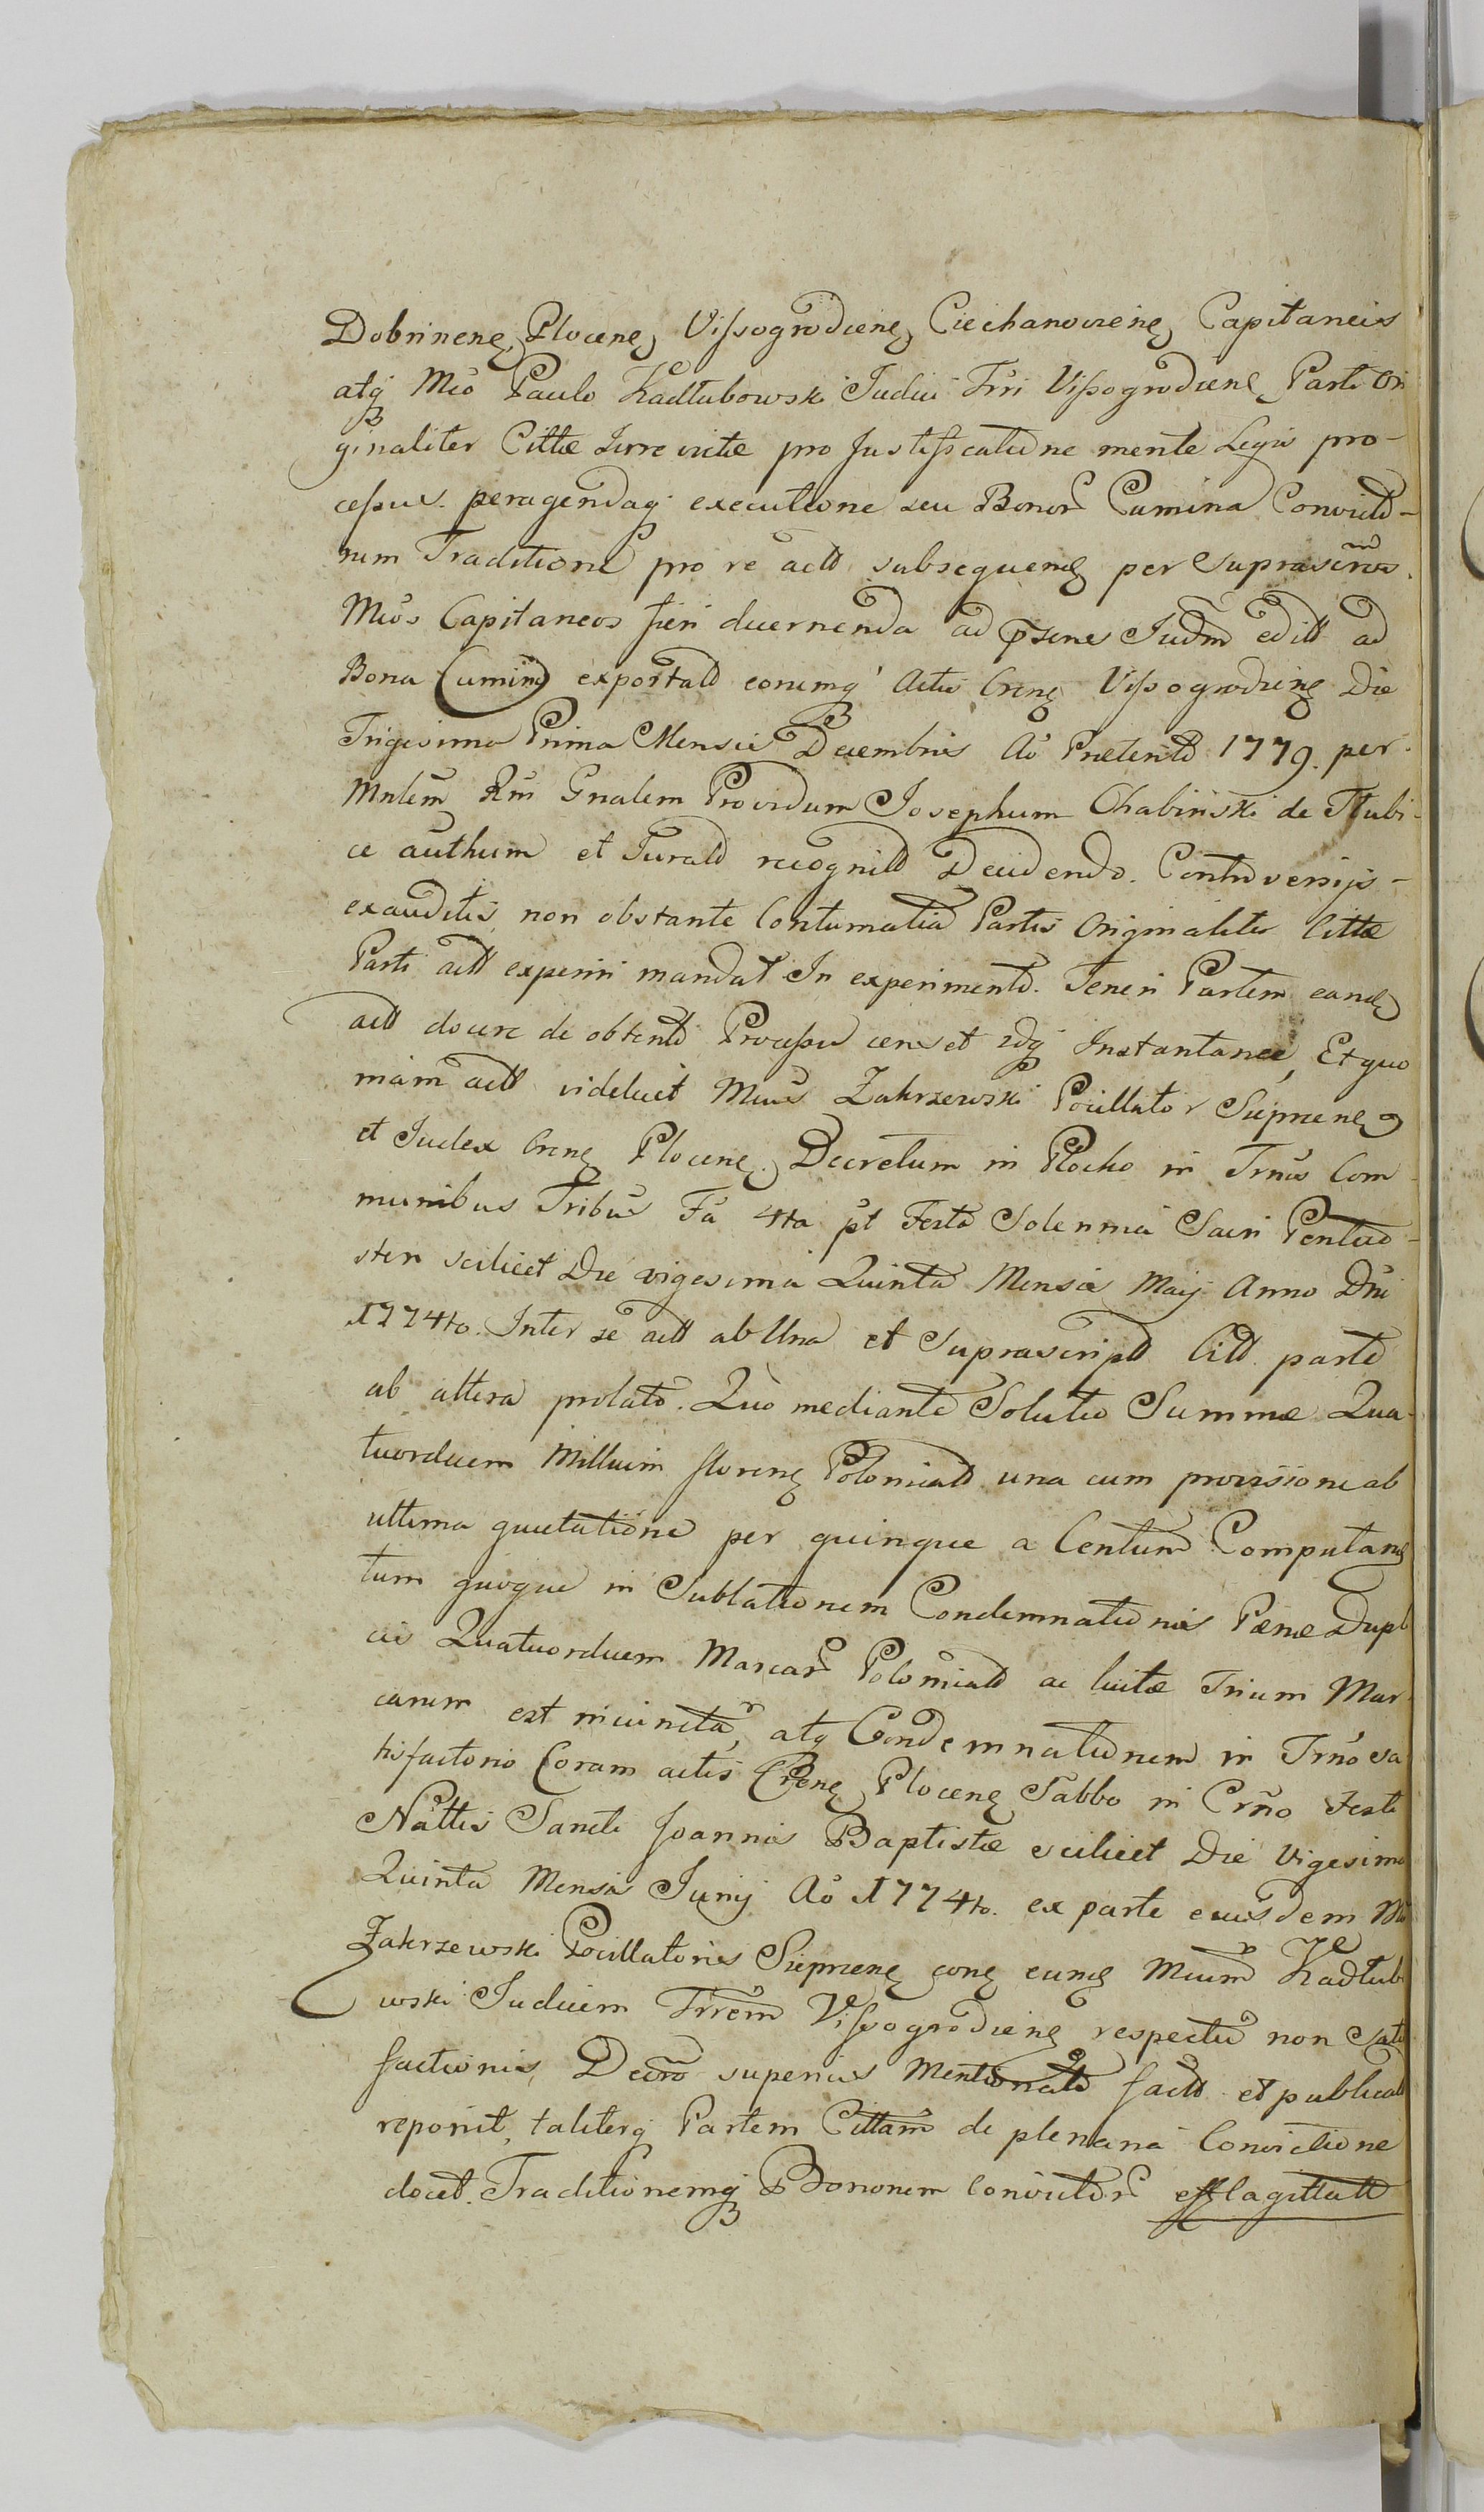 Dobrinens, Plocens, Vissogrodiens, Ciechanoviens, Capitaneis
atq Mco Paulo Kadłubowski Judici Trri Vissogrodiens Parti Ori
ginaliter Cittæ Irrevictæ pro Justificatione mente Legis pro-
cessus. peragendaq executione seu Bonor Cumino Convicto-
rum Traditione pro re actt subsequens per Suprascriptos
Mcos Capitaneos fieri decernenda ad psens Judm editt ad
Bona Cumino exportatt eorumq Actis Crens Vissogrodiens Die
Trigesima Prima Mensis Decembris Ao Preterito 1779. per
Mnlem Rni Gnalem Providum Josephum Chabinski de Słubi-
ce authum et Juratt recognitt Decidendo. Controversijs
exauditis, non obstante Contumatia Partis Originaliter Cittæ
Parti actt experiri mandat In experimento. Teneri Partem eand
actt docere de obtento Processu censet idq Instantanee, Et quo
niam actt videlicet Mcus Zakrzewski Pocillator Siepricens
et Judex Crens Plocens. Decretum in Płocko in Trnis Com
munibus Tribus Fa 4ta pt Festa Solennia Sacri Penteco-
sten scilicet Die vigesima Quinta Mensis Maij Anno Dni
1774to. Inter se actt ab Una et Suprascriptt Citt. parte
ab altera prolato. Quo mediante Solutio Summæ Qua-
tuordecem Millium floreng Polonicatt una cum provisione ab
ultima quietatione per quinque a Centum Computans
tum quoque in Sublationem Condemnationis Pænæ Dupl
cis Quatuordecem Marcar Polonicatt ac luitæ Trium Mar
carum est iniuncta, atq Condemnationem in Trno sa
tisfactorio Coram actis Crens Plocens Sabbo in Crno Festi
Nattis Sancti Joannis Baptistæ scilicet Die Vigesima
Quinta Mensis Junij Ao 1774to. ex parte eiusdem Mci
Zakrzewski Pocillatoris Siepricens cons eund Mcum Kadłub
wski Judicem Trrem Vissogrodiens respectu non Satis
factionis, Decro superius Mentionato factt et publicatt
reponit, taliterq Partem Cittam de plenaria Convictione
docet. Traditionemq Bonorum Convictor efflagittatt